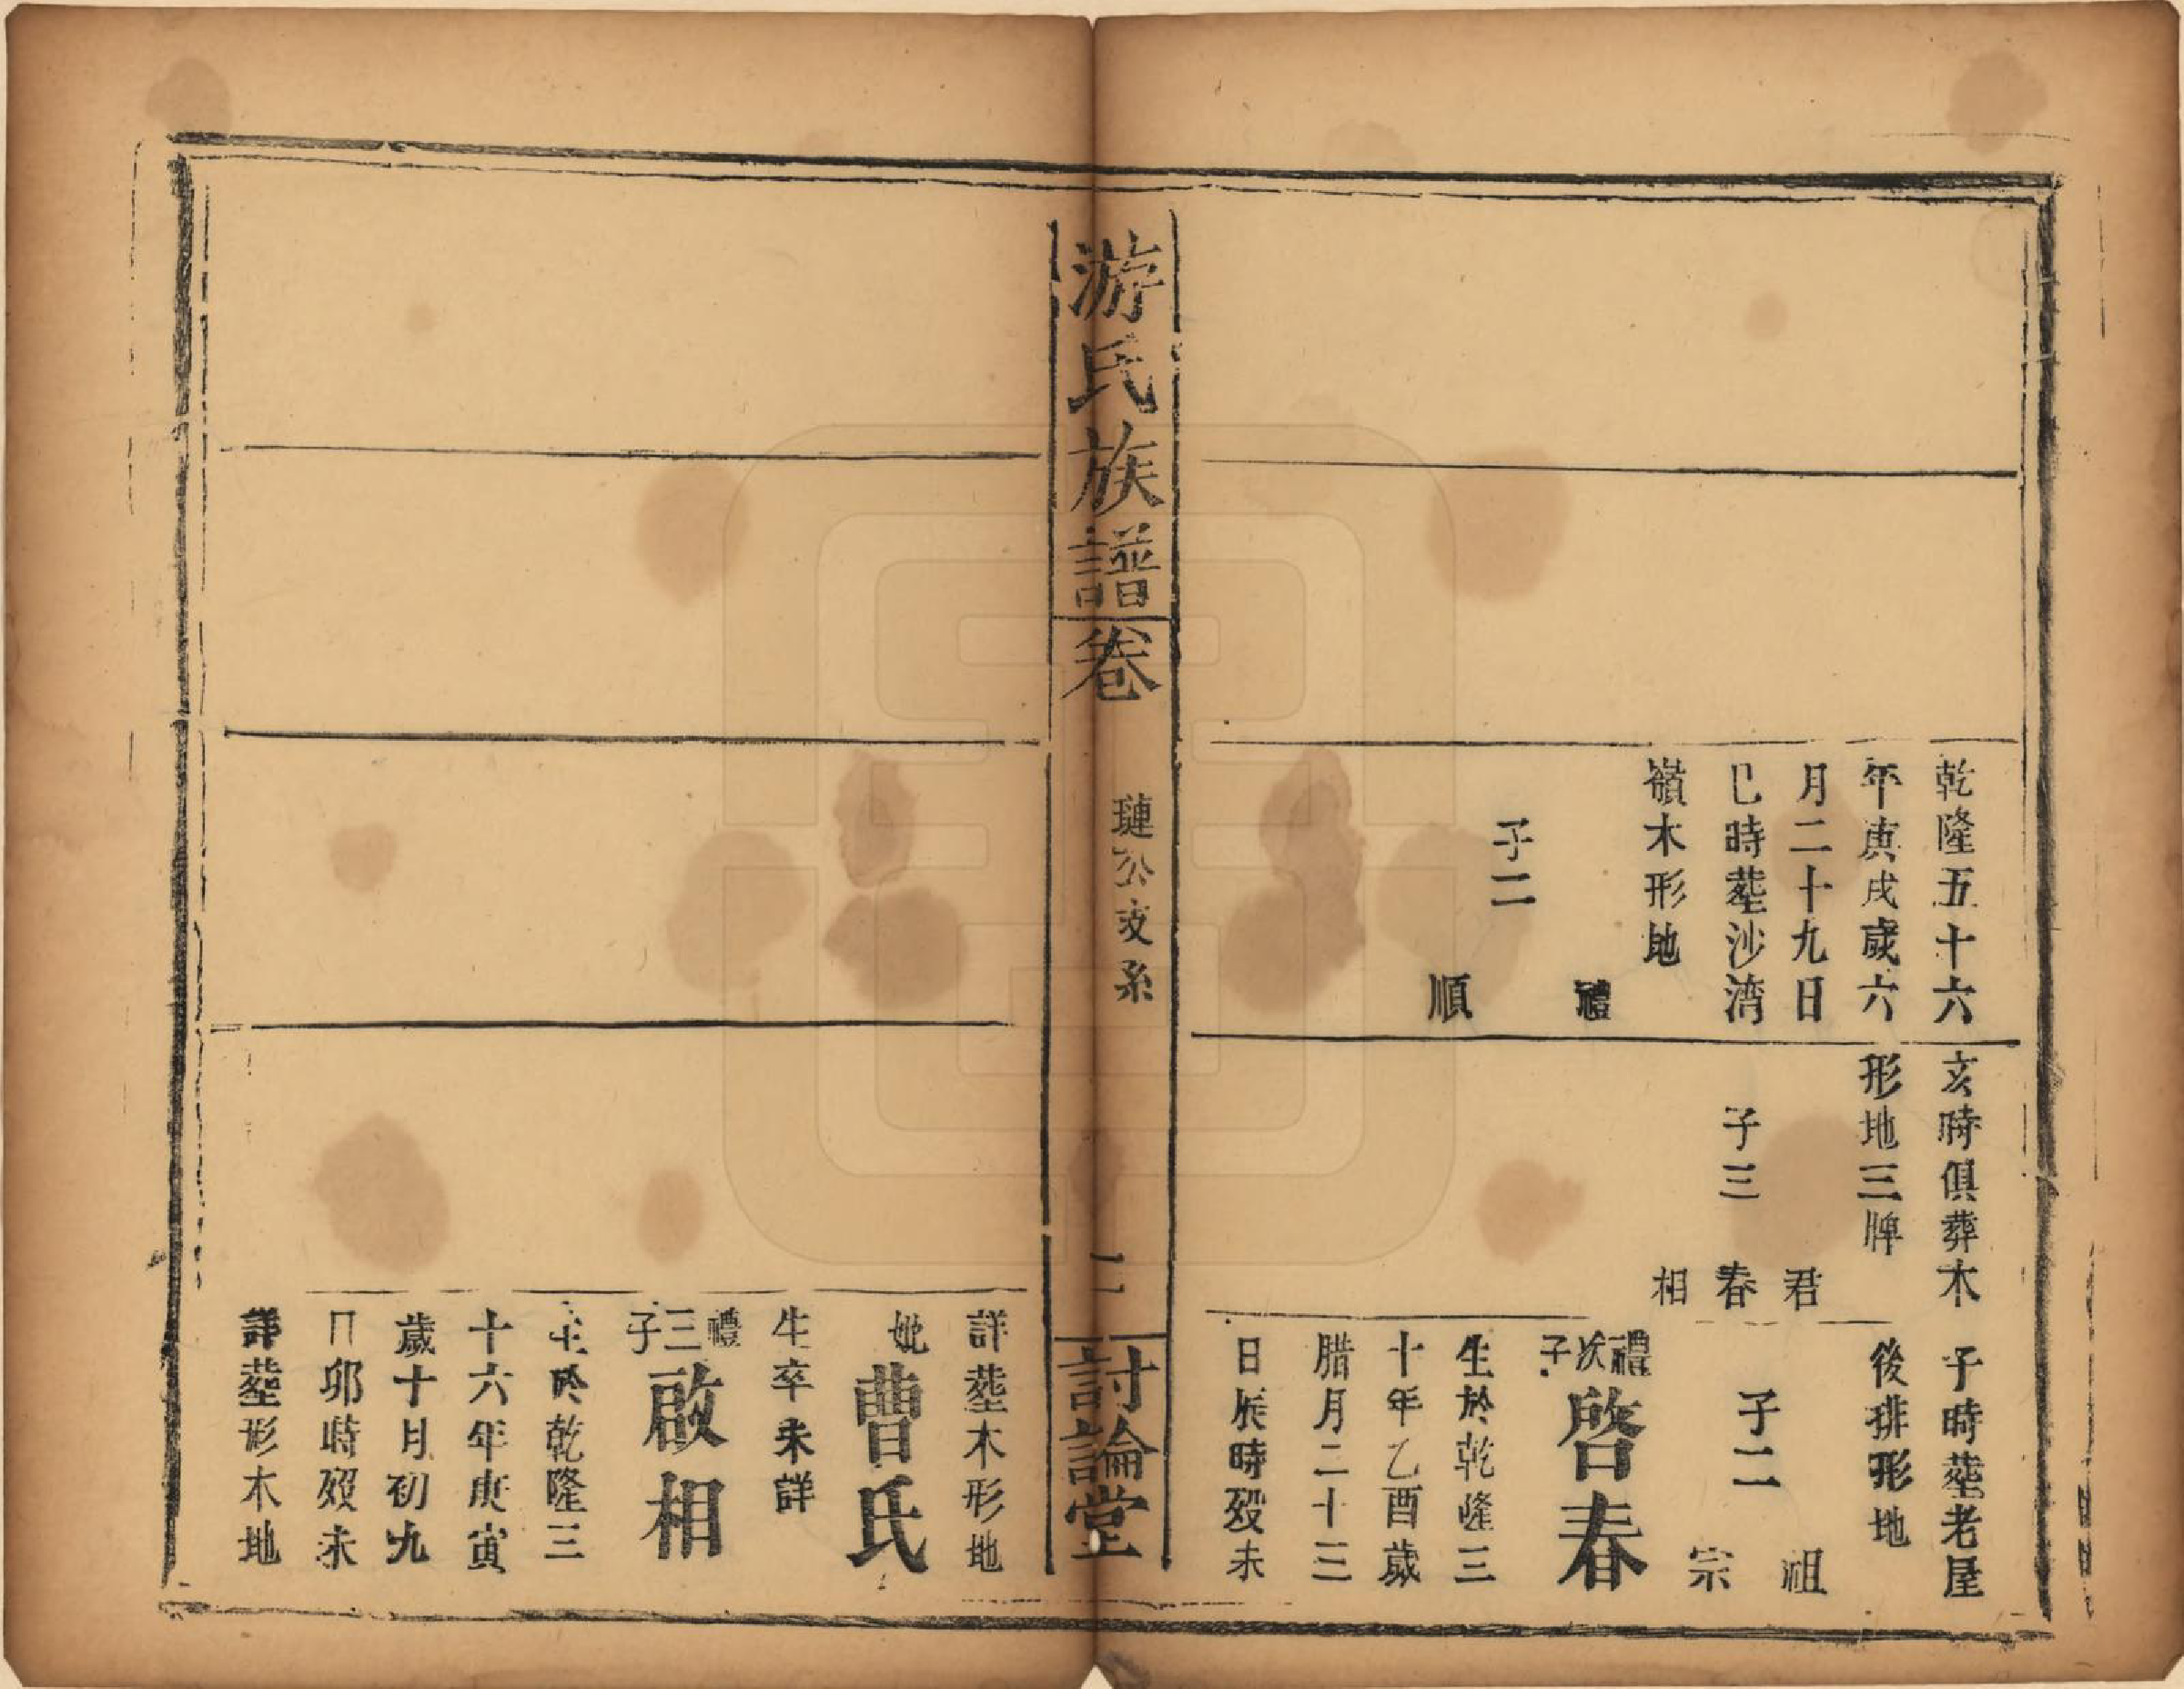 乾隆五十六
年庚戌歲六
月二十九日
巳時塟沙湾
嶺木形地
子二
禮
順
亥時俱葬木
形地三牌
子三
君
春
相
子時塟老屋
後排形地
子二
祖
宗
禮次子
啓春
生於乾隆三
十年乙酉歲
腊月二十三
日辰時殁未
游氏族譜卷
璉公支系
二
討論堂
詳塟木形地
妣
曹氏
生卒未詳
禮三子
啟相
生於乾隆三
十六年庚寅
歲十月初九
日卯時殁未
詳塟形木地